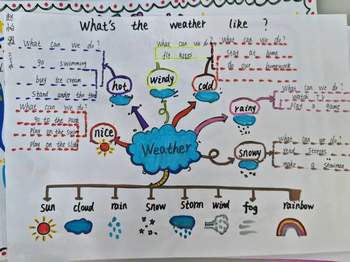 What's the weather like ?
What can we do?
go swimming
buy ice cream
Stand under the
hot
What can we do?
fly kites
windy
What can we do?
Stay at home
do our homework
cold
What can we do?
rainy
What can we do?
go to the
Play on the
Play on the slide
nice
Weather
snowy
What can we do?
read stories
make a snowman
sun cloud rain snow storm wind fog rainbow